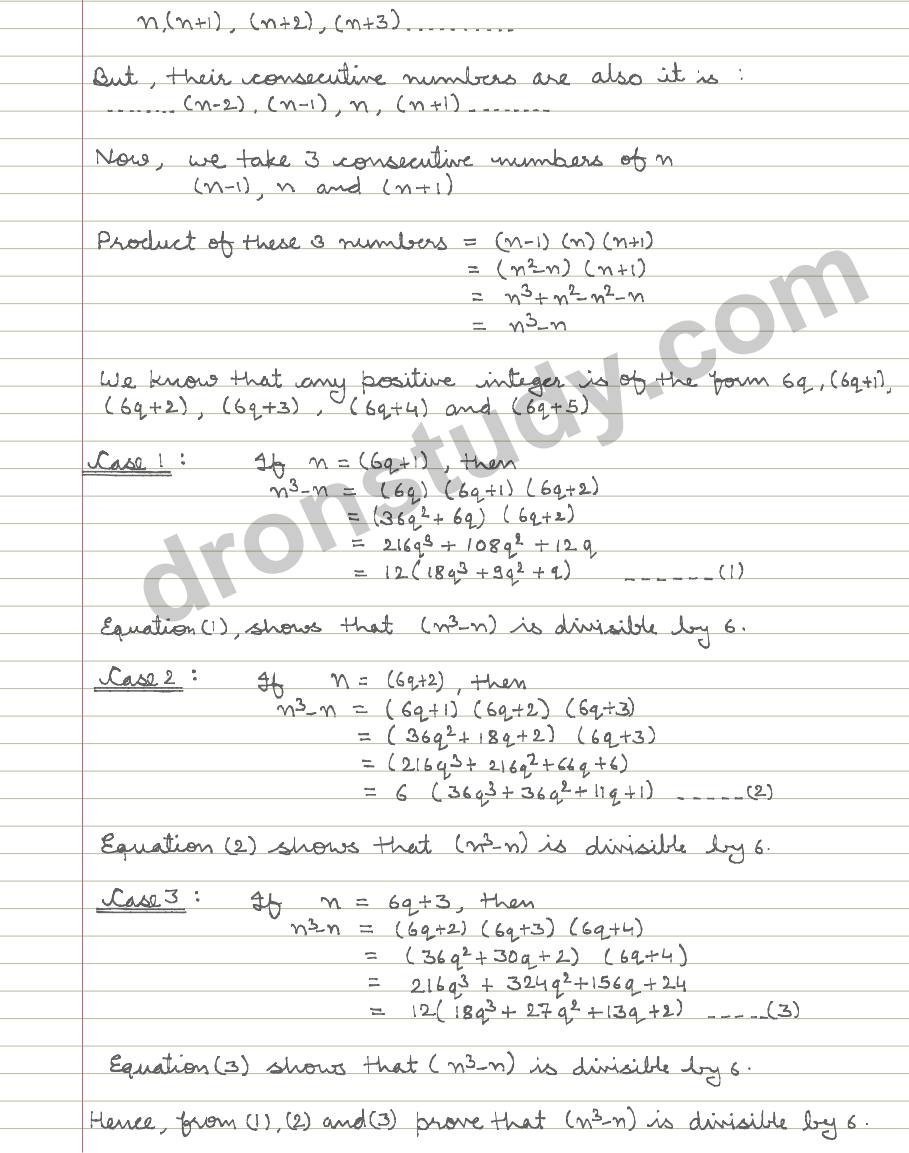 n,(n+1), (n+2), (n+3)..........
But, their consecutive numbers are also it is :
........(n-2), (n-1), n, (n+1)........
Now, we take 3 consecutive numbers of n
(n-1), n and (n+1)
Product of these 3 numbers = (n-1) (n) (n+1)
= (n²-n) (n+1)
= n³+n²-n²-n
= n³-n
We know that any positive integer is of the form 6q, (6q+1),
(6q+2), (6q+3), (6q+4) and (6q+5)
Case 1 : If n = (6q+1), then
n³-n = (6q) (6q+1) (6q+2)
= (36q²+6q) (6q+2)
= 216q³ + 108q² + 12q
= 12(18q³+9q²+q) -------(1)
Equation(1), shows that (n³-n) is divisible by 6.
Case 2 : If n = (6q+2), then
n³-n = (6q+1) (6q+2) (6q+3)
= (36q²+18q+2) (6q+3)
= (216q³+ 216q²+66q+6)
= 6 (36q³+36q²+11q+1) ------(2)
Equation (2) shows that (n³-n) is divisible by 6.
Case 3 : If n = 6q+3, then
n³-n = (6q+2) (6q+3) (6q+4)
= (36q²+30q+2) (6q+4)
= 216q³ + 324q²+156q+24
= 12(18q³+27q²+13q+2) -----(3)
Equation(3) shows that (n³-n) is divisible by 6.
Hence, from (1), (2) and(3) prove that (n³-n) is divisible by 6.
dronstudy.com